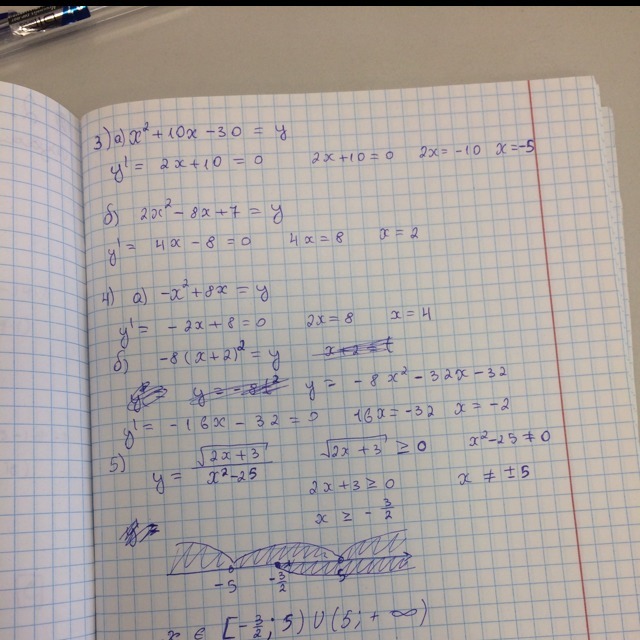 3) а) x² + 10x - 30 = y
y' = 2x + 10 = 0 2x + 10 = 0 2x = -10 x = -5
б) 2x² - 8x + 7 = y
y' = 4x - 8 = 0 4x = 8 x = 2
4) а) -x² + 8x = y
y' = -2x + 8 = 0 2x = 8 x = 4
б) -8(x+2)² = y
y = -8x² - 32x - 32
y' = -16x - 32 = 0 16x = -32 x = -2
5) y = √(2x+3) / (x² - 25) √(2x+3) ≥ 0 x² - 25 ≠ 0
2x + 3 ≥ 0 x ≠ ±5
x ≥ -3/2
-5 -3/2 5
x ∈ [-3/2; 5) ∪ (5; +∞)